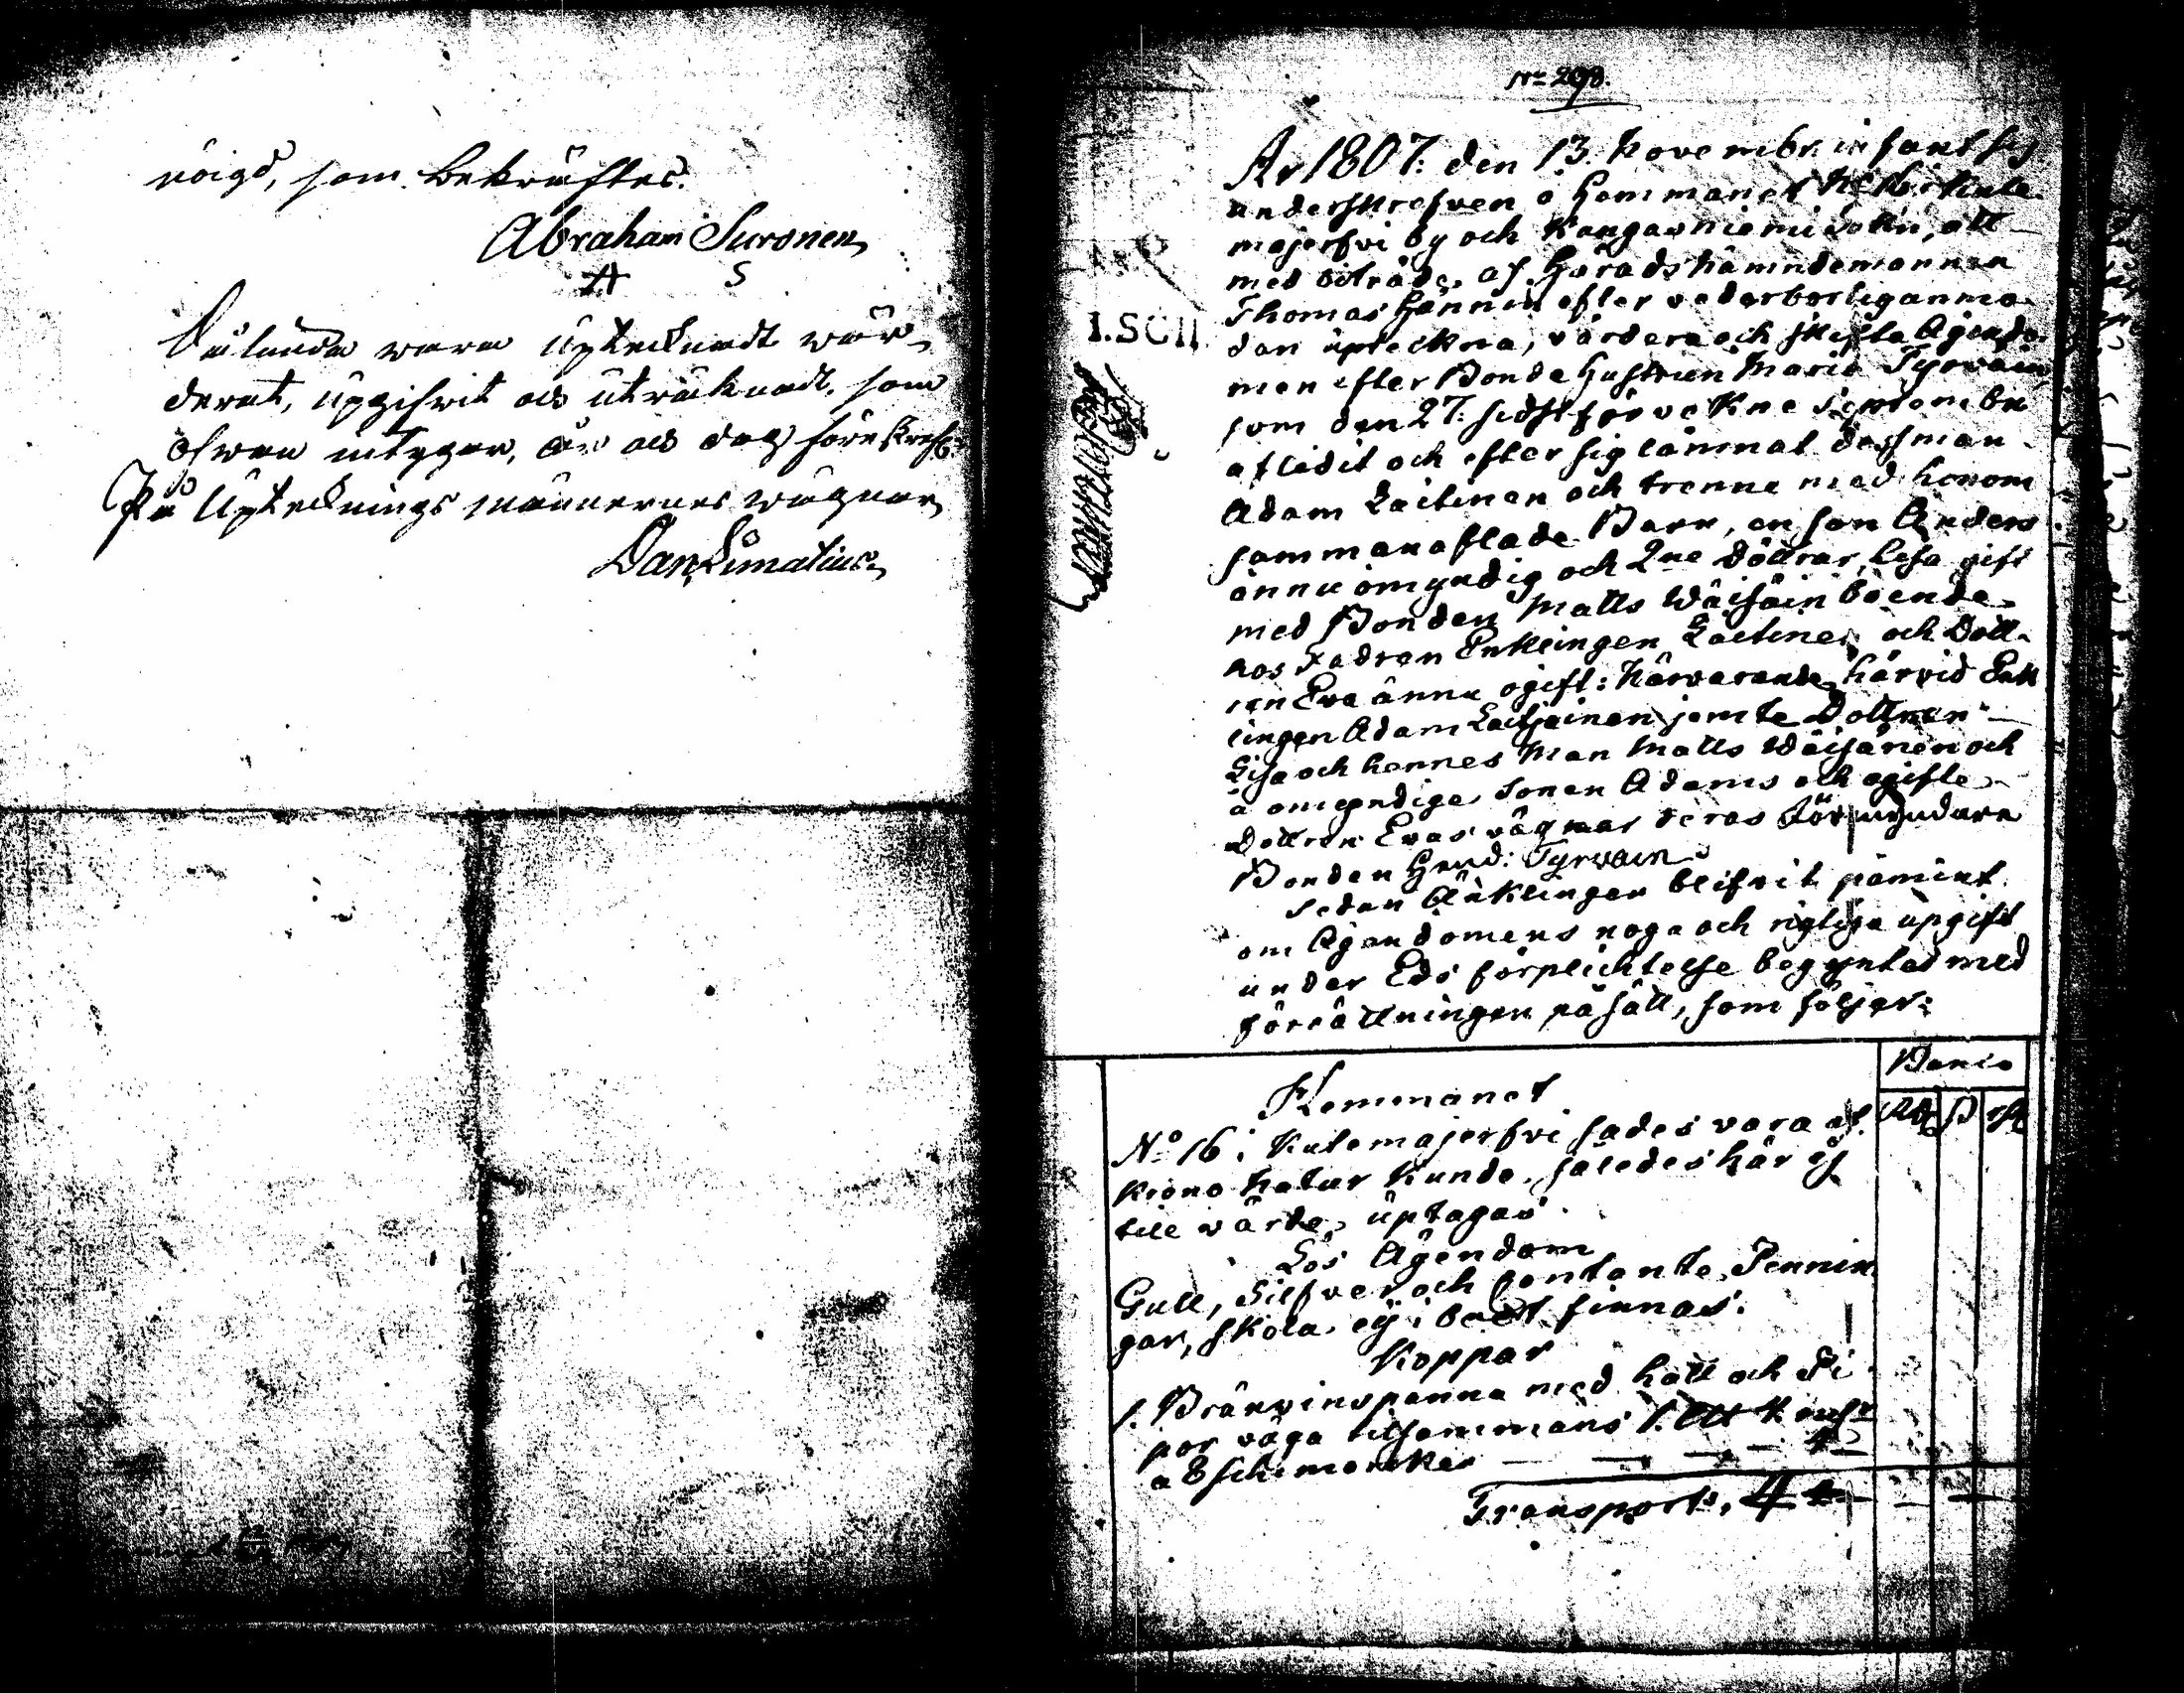 nöigd, som bekräftes.
Abraham Suronen
A S
Sålunda wara uptecknadt wär-
derat, upgifwit och uträknadt, som
ofwan intygar, år och dag föreskrefne
På Upteckningsmännernes wägnar
Dan Limatius
No 298.
År 1807: den 13 Novembr: infant sig
underskrefven å Hemmanet No 16 i Kute-
majerfvi by och Kangasniemi Sokn, att
med biträde af Häradshämndemannen
Thomas Hännin efter vederbörlig anmo-
dan upteckna, värdera och skifta Ägendo-
men efter Bonde Hustrun Maria Tyrväin,
som den 27: sidstförvekne September
aflidit och efter sig lämnat dess man
Adam Laitinen och trenne med honom
sammanaflade Barn, en son Anders
ännu omyndig och 2ne döttrar, Lisa gift
med Bonden Matts Wäisäin boende
hos Fadren Enklingen Laitinen och Dott-
ren Eva ännu ogift: Närvarande härvid Enk
lingen Adam Laitjainen jemte Dottren
Lisa och hennes Man Matts Wäisänen och
å omyndige Sonen Adams och ogifte
Dottren Evas vägnar deras Förmyndare
Bonden Hend: Tyrwäin
Sedan Änklingen blifvit påmint
om Ägendomens noga och rigtiga upgift
under Eds förplicktelse begyntes med
förrättningen på sätt, som följer:
Banco
Rdr ß rst
Hemmanet
No 16 i Kutemajerfvi sades vara af
Krono Natur kunde således här ej
till värde uptagas
Lös Ägendom
Gull, Silfver och Contante Pennin
gar, skola ej i boet finnas.
Koppar
1. Bränvinspanna med hatt och Pi
por väga tilsammans 1. Ltt
a 8 schimarcker — — — 4 —
Transport, 4 — — —